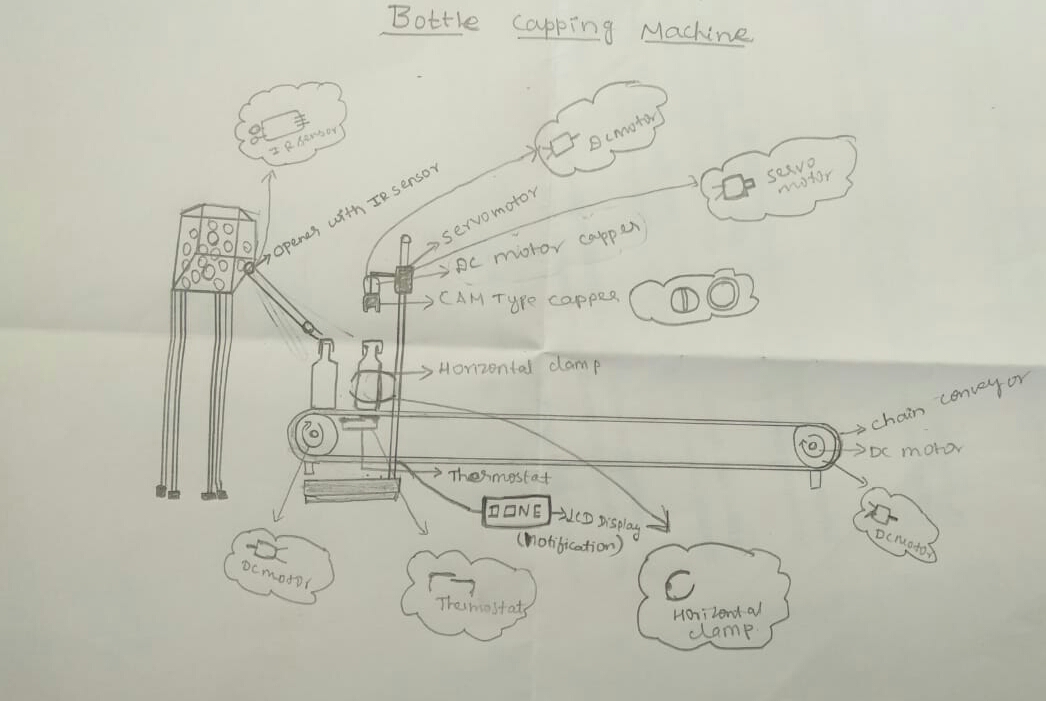 Bottle Capping Machine
IR sensor
DC motor
servo
motor
opener with IR sensor
servomotor
DC motor capper
CAM Type capper
Horizontal clamp
chain conveyor
DC motor
Thermostat
DONE
LCD Display
(Notification)
DC motor
DC motor
Thermostat
Horizontal
clamp